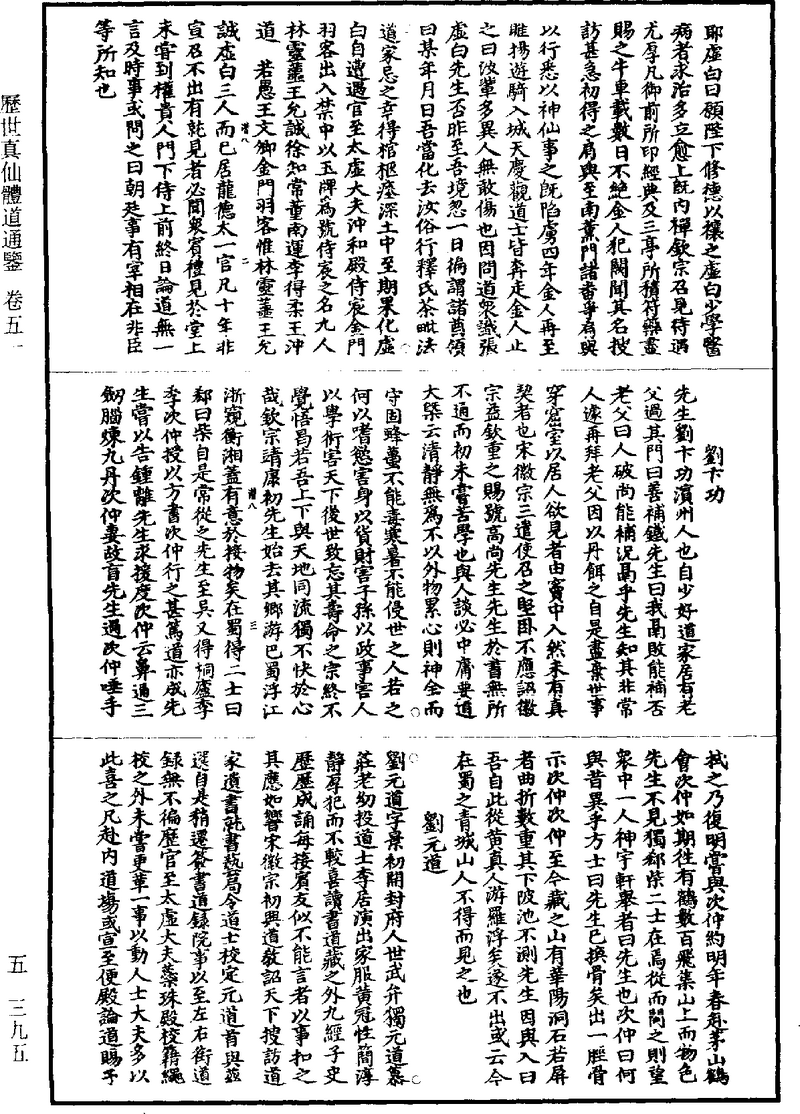 耶虛白曰願陛下修德以禳之虛白少學醫
病者求治多立愈上既內禪欽宗召見待遇
尤厚凡御前所印經典及三亭所積符藥盡
賜之牛車載數日不絕金人犯闕聞其名搜
訪甚急初得之肩與至南薰門諸酋爭肩與
以行悉以神仙事之既陷虜四年金人再至
睢揚遊騎入城天慶觀道士皆奔走金人止
之曰汝輩多異人無敢傷也因問道衆識張
虛白先生否昨至吾境忽一日徧謂諸酋領
曰某年月日吾當化去汝俗行釋氏茶毗法
道家忌之幸得棺柩瘞深土中至期果化虛
白自遭遇官至太虛大夫沖和殿侍宸金門
羽客出入禁中以玉牌為號侍宸之名九人
林靈蘁王允誠徐知常董南運李得柔王沖
道 若愚王文卿金門羽客惟林靈蘁王允
增八 二
誠虛白三人而已居龍德太一宮凡十年非
宣召不出有託見者必間衆賓禮見於堂上
未嘗到權貴人門下侍上前終日論道無一
言及時事或問之曰朝廷事有宰相在非臣
等所知也
劉卞功
先生劉卞功濱州人也自少好道家居有老
父過其門曰善補鐵先生曰我鬲敗能補否
老父曰人破尚能補況鬲乎先生知其非常
人遂再拜老父因以丹餌之自是盡棄世事
穿窟室以居人欲見者由竇中入然未有真
契者也宋徽宗三遣使召之堅卧不應詔徽
宗益欽重之賜號高尚先生先生於書無所
不通而初未嘗苦學也與人談必中膚要道
大槩云清靜無為不以外物累心則神全而
守固蜂蠆不能毒寒暑不能侵世之人若之
何以嗜慾害身以貨財害子孫以政事害人
以學術害天下後世致忘其壽命之宗終不
覺悟曷若吾上下與天地同流獨不快於心
哉欽宗靖康初先生始去其鄉游巴蜀浮江
增八 三
淛窺衡湘蓋有意於接物矣在蜀得二士曰
郄曰柴自是常從之先生至吳又得桐廬李
季次仲授以方書次仲行之甚篤道亦成先
生嘗以告鍾離先生求援度次仲云鼻過三
劒腦煉九丹次仲妻歿盲先生過次仲唾手
拭之乃復明嘗與次仲約明年春赴茅山鶴
會次仲如期往有鶴數百飛集山上而物色
先生不見獨郄柴二士在焉從而問之則望
衆中一人神宇軒舉者曰先生也次仲曰何
與昔異乎方士曰先生已換骨矣出一脛骨
示次仲次仲至今藏之山有華陽洞石若屏
者曲折數重其下陂池不測先生因與入曰
吾自此從黃真人游羅浮矣遂不出或云今
在蜀之青城山人不得而見之也
劉元道
劉元道字景初開封府人世武弁獨元道慕
莊老幼投道士李居演出家服黃冠性簡淳
靜辱犯而不較喜讀書道藏之外九經子史
歷歷成誦每接賓友似不能言者以事扣之
其應如響宋徽宗初興道教詔天下搜訪道
家遺書就書藝局令道士校定元道首與茲
選自是稍遷簽書道錄院事以至左右街道
錄無不徧歷官至太虛大夫蘂珠殿校籍繩
校之外未嘗更華一事以動人士大夫多以
此喜之凡赴內道場或宣至便殿論道賜予
歷世真仙體道通鑒 卷五一
五 三九五